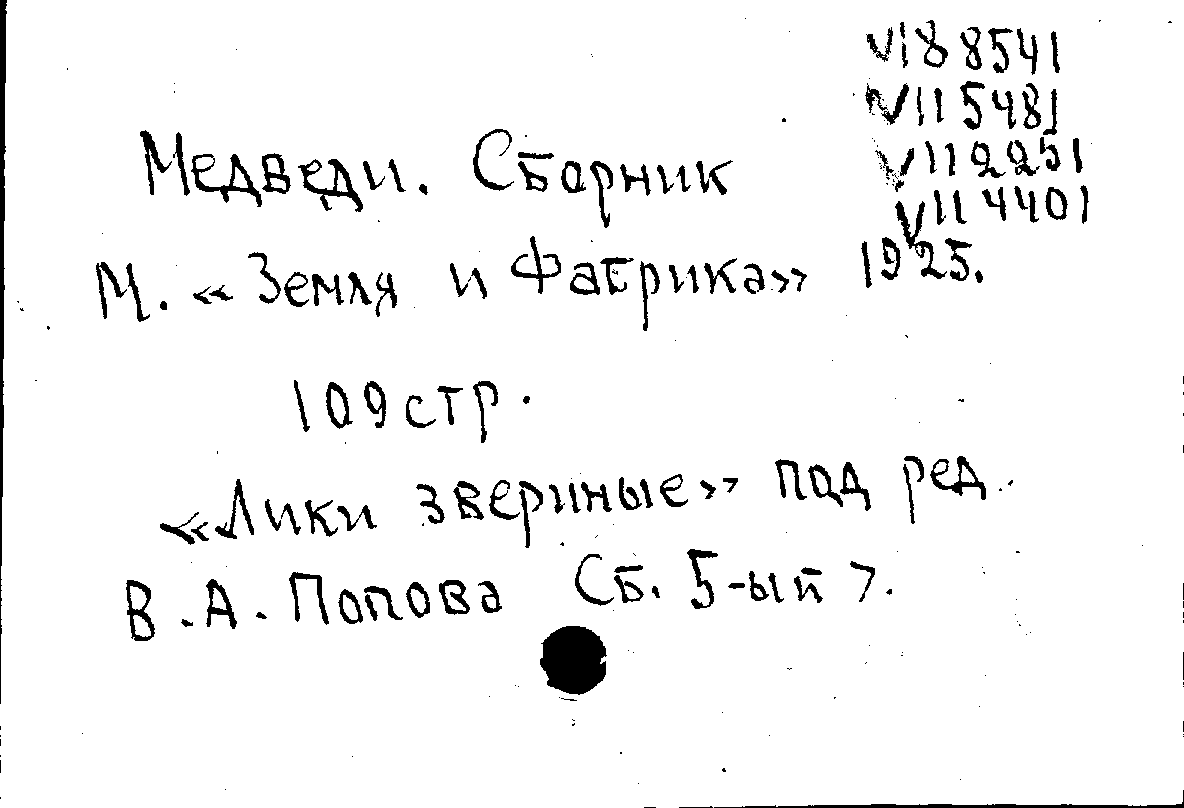 V188541
V115481
V112251
V114401
Медведи. Сборник
М. «Земля и Фабрика» 1925.
109 стр.
«Лики звериные» под ред.
В.А. Попова Сб. 5-ый